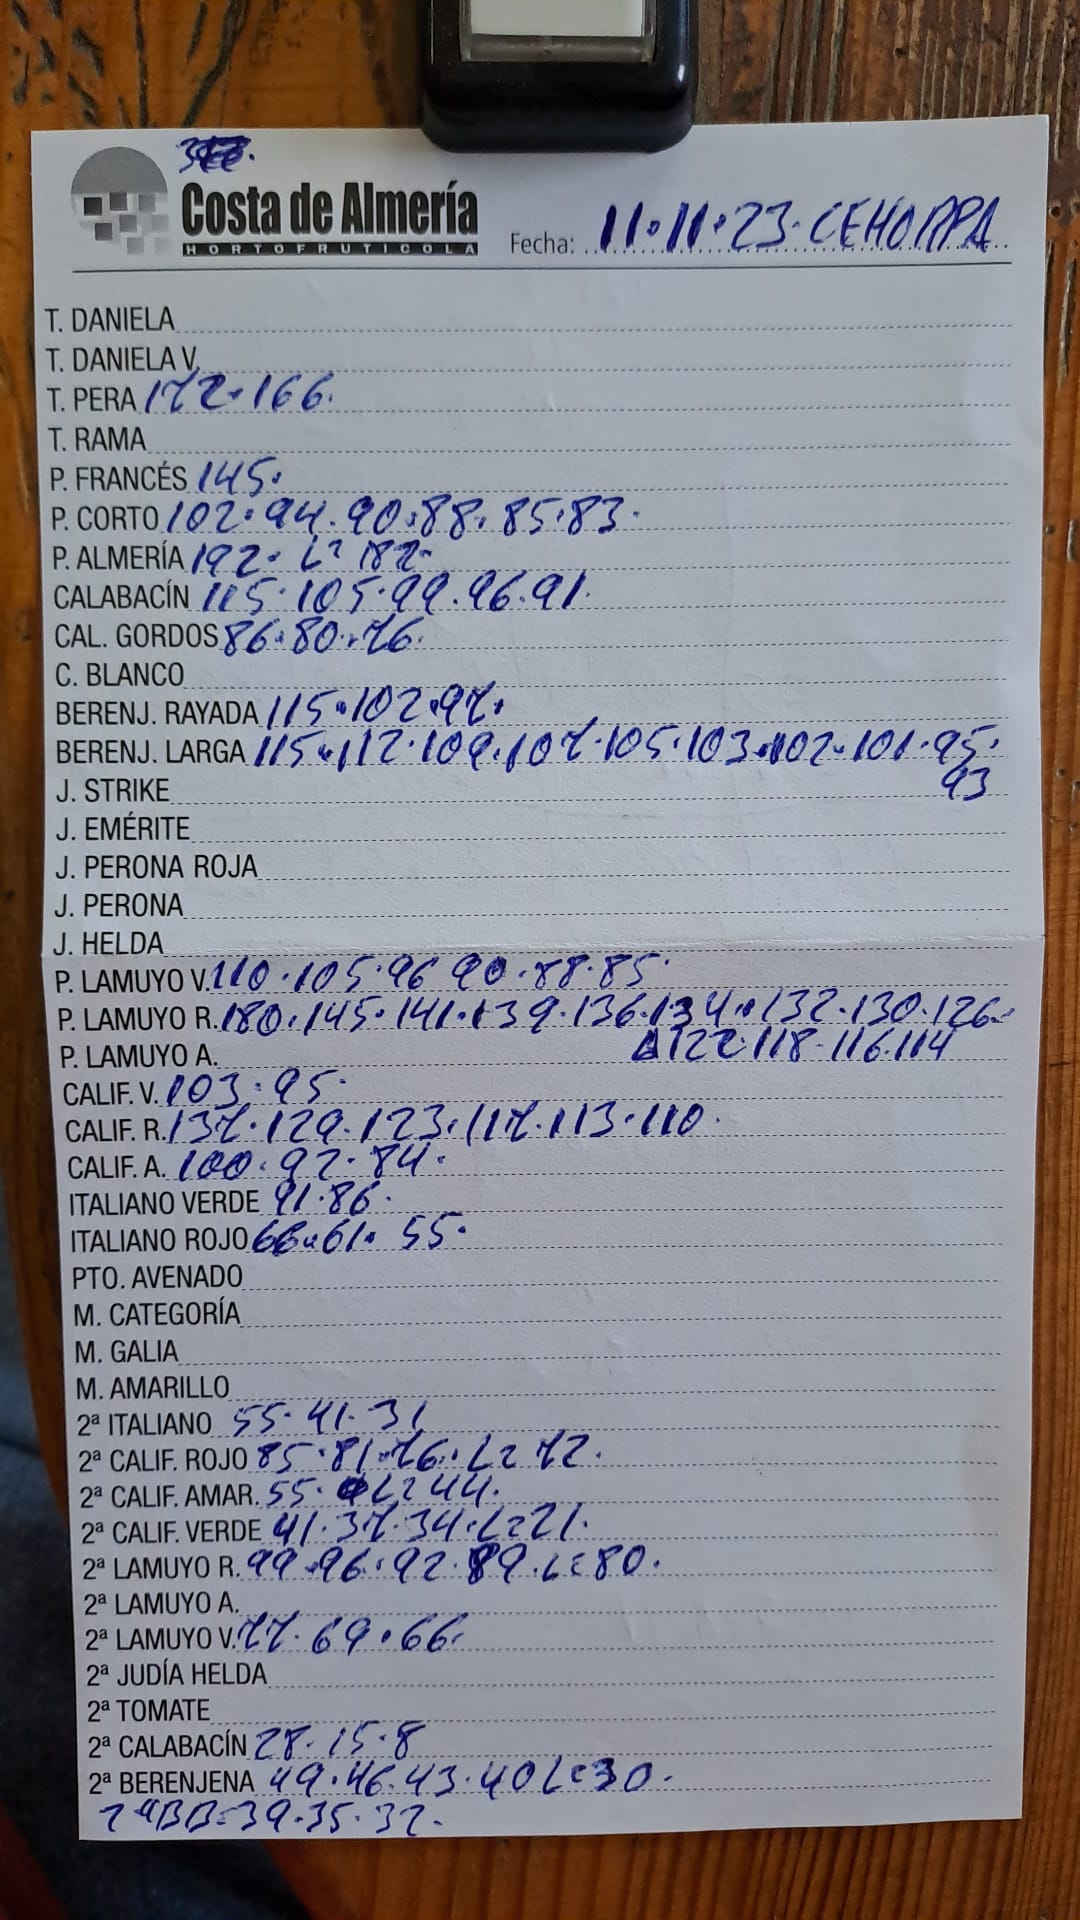 Costa de Almería
HORTOFRUTICOLA
Fecha: 11·11·23·CEHORPA
T. DANIELA
T. DANIELA V.
T. PERA 172·166·
T. RAMA
P. FRANCÉS 145·
P. CORTO 102·94·90·88·85·83·
P. ALMERÍA 192· L= 182·
CALABACÍN 115·105·99·96·91·
CAL. GORDOS 86·80·76·
C. BLANCO
BERENJ. RAYADA 115·102·97·
BERENJ. LARGA 115·112·109·107·105·103·102·101·95·
93
J. STRIKE
J. EMÉRITE
J. PERONA ROJA
J. PERONA
J. HELDA
P. LAMUYO V. 110·105·96 90·88·85·
P. LAMUYO R. 180·145·141·139·136·134·132·130·126·
122·118·116·114
P. LAMUYO A.
CALIF. V. 103·95·
CALIF. R. 137·129·123·117·113·110·
CALIF. A. 100·92·84·
ITALIANO VERDE 91·86·
ITALIANO ROJO 66·61· 55·
PTO. AVENADO
M. CATEGORÍA
M. GALIA
M. AMARILLO
2ª ITALIANO 55·41·31
2ª CALIF. ROJO 85·81·76·L= 72·
2ª CALIF. AMAR. 55· L= 44·
2ª CALIF. VERDE 41·37·34·L=21·
2ª LAMUYO R. 99·96·92·89·L=80·
2ª LAMUYO A.
2ª LAMUYO V. 77·69·66·
2ª JUDÍA HELDA
2ª TOMATE
2ª CALABACÍN 28·15·8
2ª BERENJENA 49·46·43·40 L=30·
2ªBB=39·35·32·